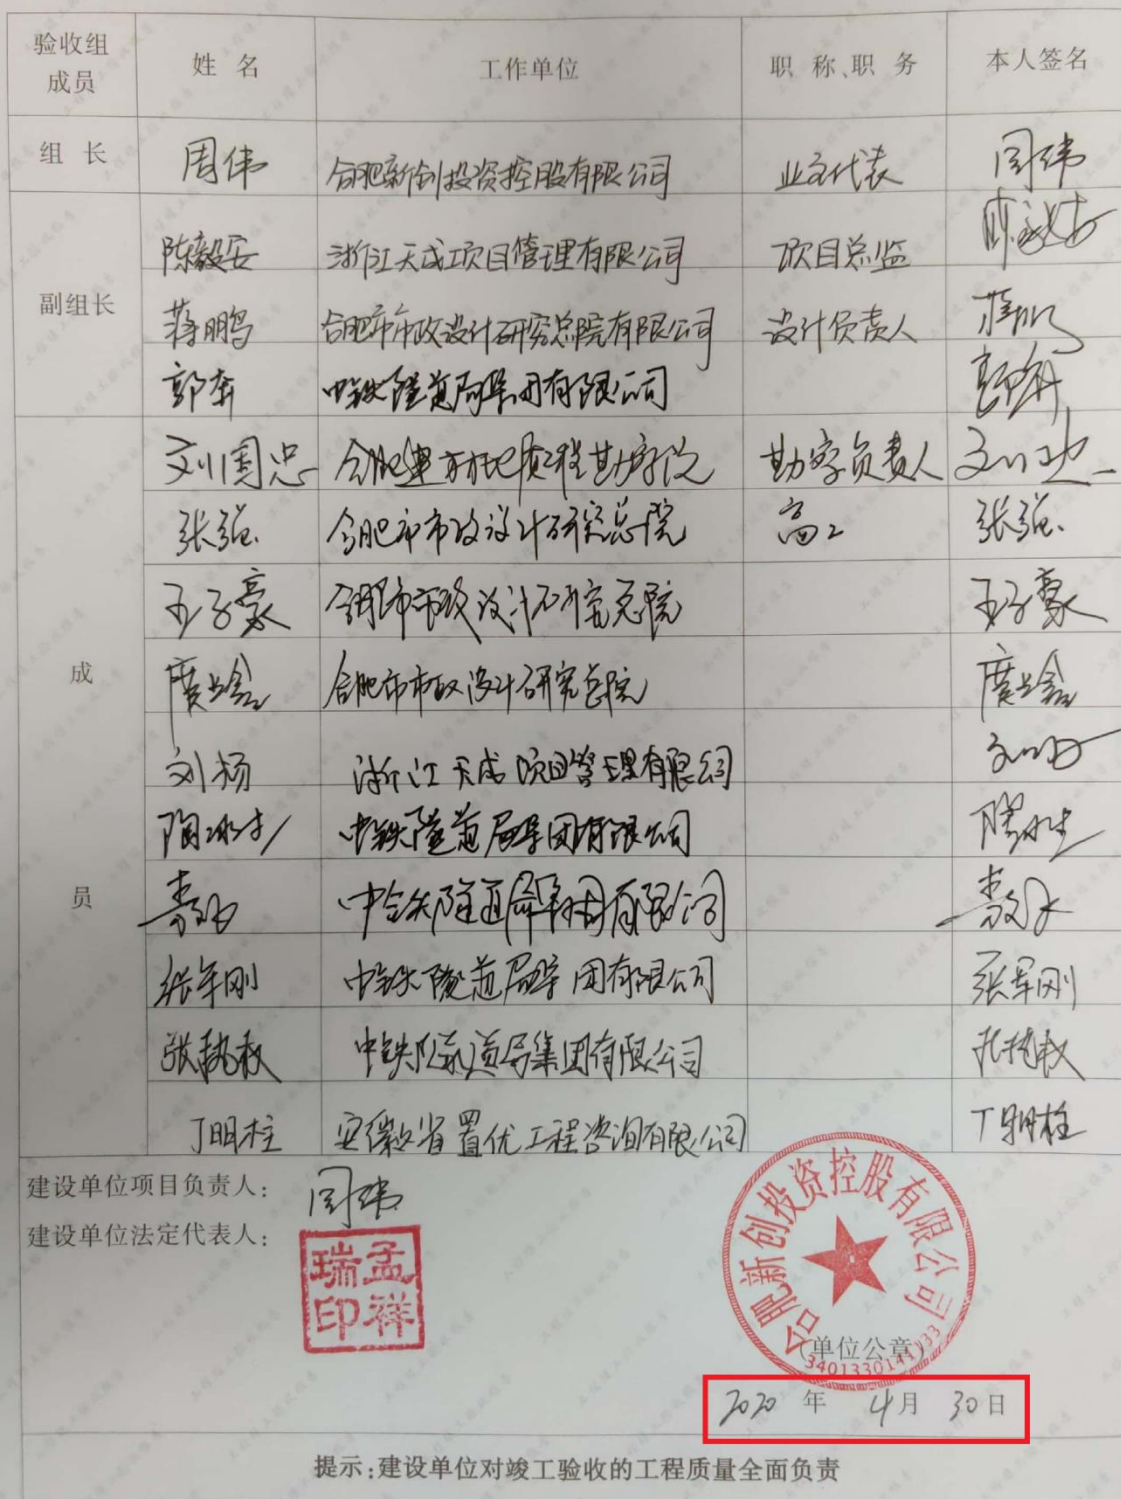 验收组成员 姓名 工作单位 职称、职务 本人签名
组长 周伟 合肥新创投资控股有限公司 业主代表 周伟
副组长
陈毅安 浙江天成项目管理有限公司 项目总监
蒋鹏 合肥市市政设计研究总院有限公司 设计负责人
郭奔 中铁隧道局集团有限公司
成员
刘国忠 合肥建材地质工程勘察院 勘察负责人
张强 合肥市市政设计研究总院 高工 张强
王子豪 合肥市市政设计研究总院 王子豪
合肥市市政设计研究总院
刘杨 浙江天成项目管理有限公司
陶冰 中铁隧道局集团有限公司
中铁隧道局集团有限公司
张军刚 中铁隧道局集团有限公司 张军刚
张执权 中铁隧道局集团有限公司 张执权
丁明柱 安徽省置优工程咨询有限公司 丁明柱
建设单位项目负责人: 周伟
建设单位法定代表人:
孟祥瑞印
合肥新创投资控股有限公司
(单位公章)
2020年4月30日
提示:建设单位对竣工验收的工程质量全面负责